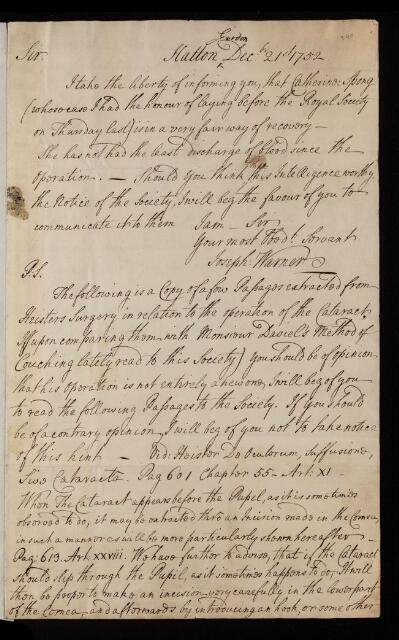 Garden
Sir. Hatton ^ Dec.br 21st 1752
I take the liberty of informing you, that Catherine Spong
(whose case I had the honour of laying before the Royal Society
on Thursday last) is in a very fair way of recovery —
She has not had the least discharge of blood since the
Operation. — Should you think this Intelligence worthy
the Notice of the Society, I will beg the favour of you to
communicate it to them I am — Sir
Your most Obed.t Servant
Joseph Warner
P.S.
The following is a Copy of a few Passages extracted from
Heisters Surgery in relation to the operation of the Cataract.
If upon comparing them with Monsieur Daviel's Method of
Couching lately read to this Society) you should be of opinion
that his Operation is not entirely a new one, I will beg of you
to read the following Passages to the Society. If you should
be of a contrary opinion, I will beg of you not to take notice
of this hint — Vid: Heister De Oculorum, Suffusione,
Sive Cataracta. Pag 601 Chapter 55 — Art: XI —
When The Cataract appears before the Pupil, as it is sometimes
observed to do, it may be extracted thro an Incision made in the Cornea,
in such a manner as will be more particularly shown hereafter —
Pag: 613. Art: XXVIII. We have further to advise, that if the Cataract
should slip through the Pupil, as it sometimes happens to do, It will
then be proper to make an incision very carefully in the lower part
of the Cornea, and afterwards by introducing an hook, or some other